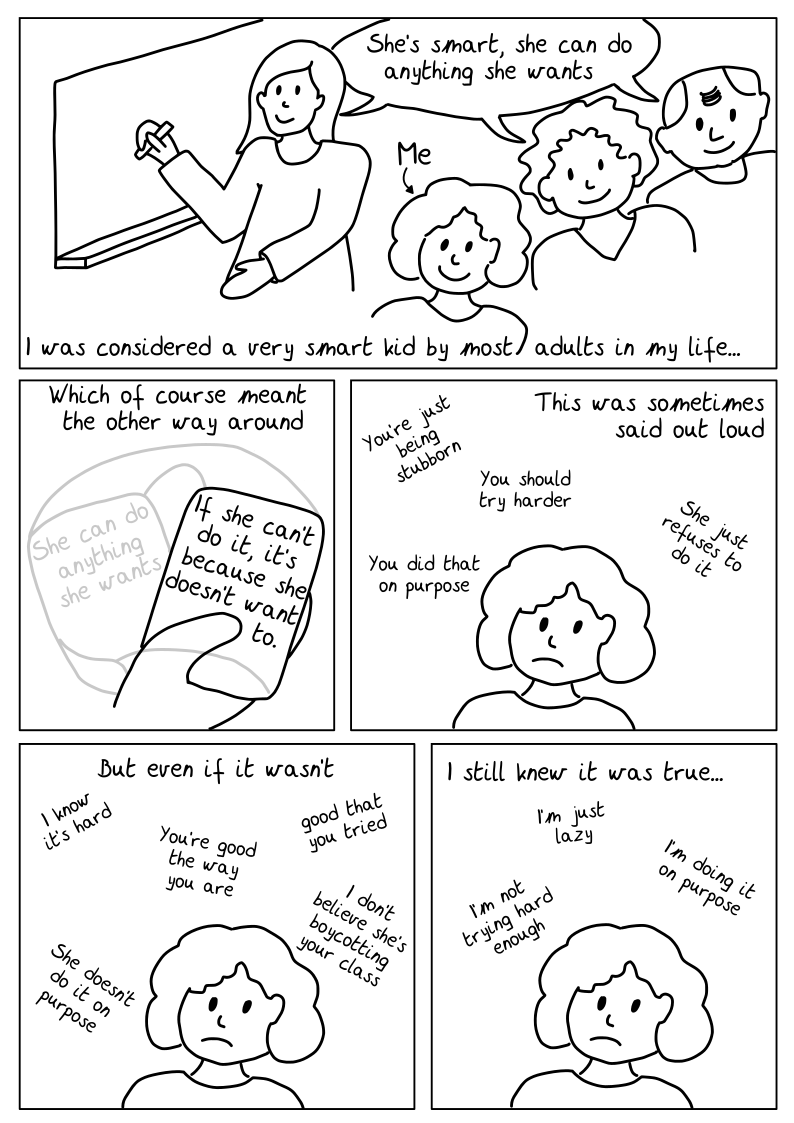 She's smart, she can do
anything she wants
Me
I was considered a very smart kid by most adults in my life...
Which of course meant
the other way around
She can do
anything
she wants
If she can't
do it, it's
because she
doesn't want
to.
This was sometimes
said out loud
You're just
being
stubborn
You should
try harder
She just
refuses to
do it
You did that
on purpose
But even if it wasn't
I know
it's hard
You're good
the way
you are
good that
you tried
I don't
believe she's
boycotting
your class
She doesn't
do it on
purpose
I still knew it was true...
I'm just
lazy
I'm doing it
on purpose
I'm not
trying hard
enough